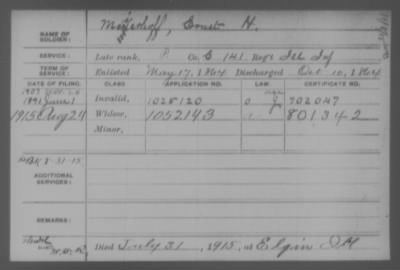 NAME OF SOLDIER: Meierhoff, Ernst H.
SERVICE: Late rank, P Co. C 141 Reg't Ill Inf
TERM OF SERVICE: Enlisted May 17, 1864 Discharged Oct 10, 1864
DATE OF FILING. CLASS. APPLICATION NO. LAW. CERTIFICATE NO.
1891 Invalid, 1028120 702047
1915 Aug 24 Widow, 1052143 801342
Minor,
8-31-15
ADDITIONAL SERVICES:
REMARKS:
Died July 31, 1915, at Elgin Ill